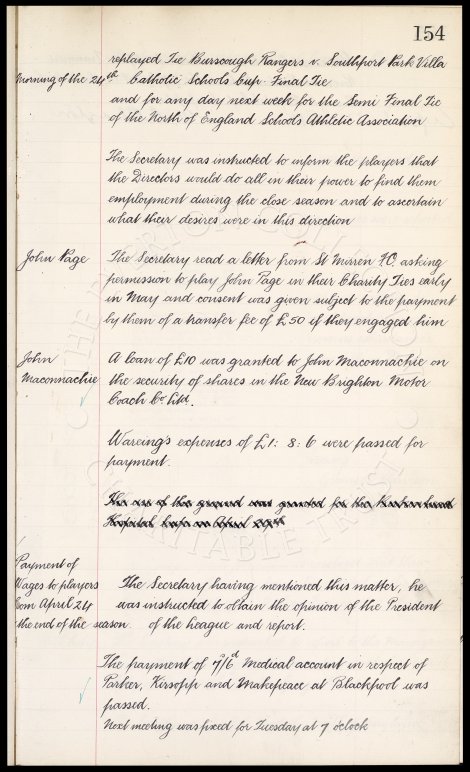 154
replayed Tie Burscough Rangers v. Southport Park Villa
Morning of the 24th Catholic Schools Cup Final Tie
and for any day next week for the Semi Final Tie
of the North of England Schools Athletic Association
The Secretary was instructed to inform the players that
the Directors would do all in their power to find them
employment during the close season and to ascertain
what their desires were in this direction
John Page
The Secretary read a letter from St Mirren F.C. asking
permission to play John Page in their Charity Ties early
in May and consent was given subject to the payment
by them of a transfer fee of £50 if they engaged him
John
Maconnachie
A loan of £10 was granted to John Maconnachie on
the security of shares in the New Brighton Motor
Coach Co Ltd.
Wareing's expenses of £1: 8: 6 were passed for
payment.
The use of the ground was granted for the
Hospital Cup on April 29th
Payment of
Wages to players
from April 24
the end of the season.
The Secretary having mentioned this matter, he
was instructed to obtain the opinion of the President
of the League and report.
The payment of 7/6d Medical account in respect of
Parker, Kirsopp and Makepeace at Blackpool was
passed.
Next meeting was fixed for Tuesday at 7 o'clock
CHARITABLE TRUST